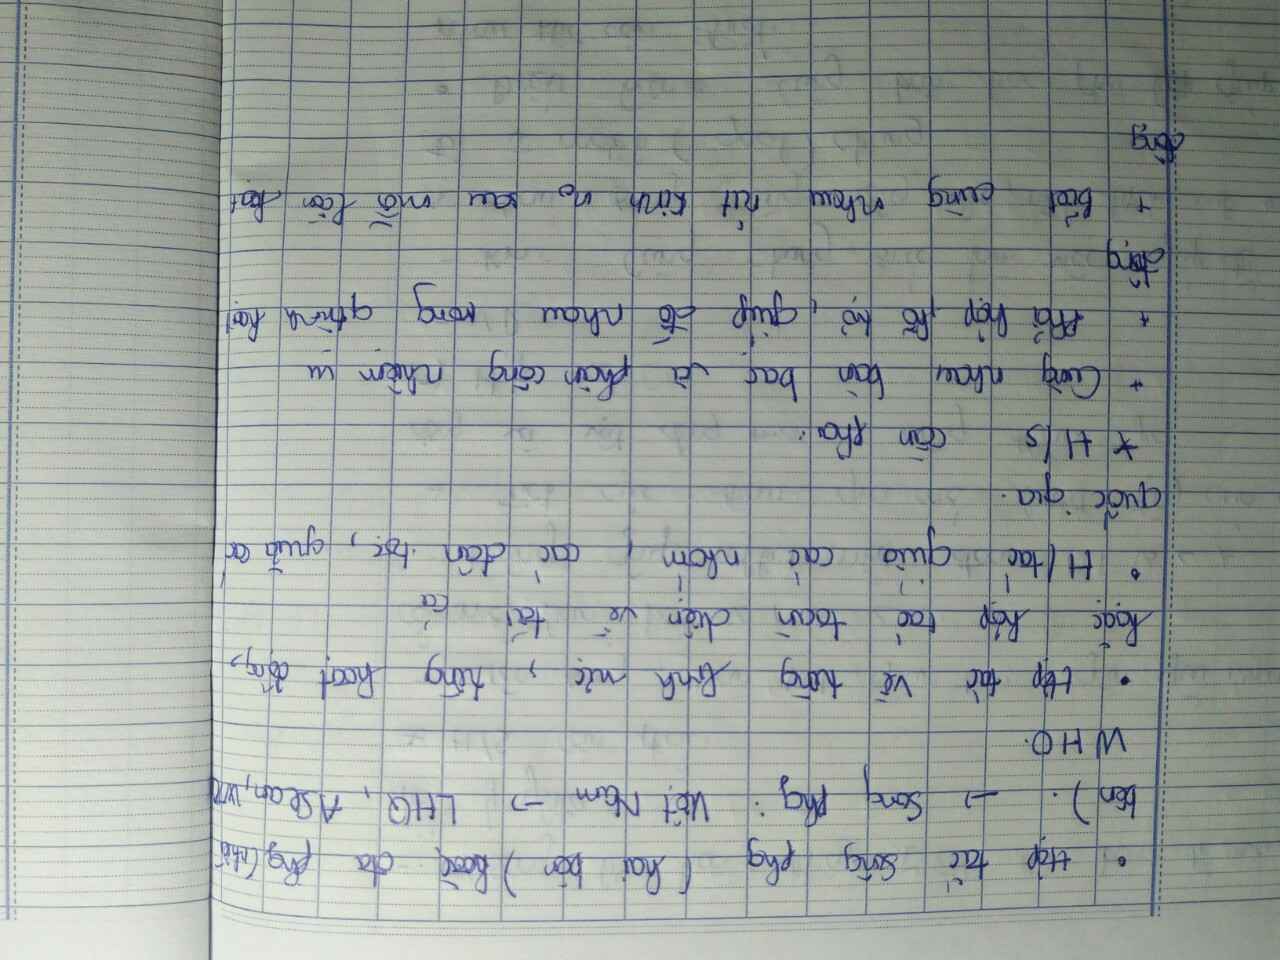 • Hợp tác song phg (hai bên) hoặc đa phg (nhiều
bên). → song phg : Việt Nam → LHQ, ASean, WTO
WHO.
• Hợp tác về từng lĩnh vực, từng hoạt động,
hoặc hợp tác toàn diện về tất cả
• H/tác giữa các nhóm, các dân tộc, giữa các
quốc gia.
* H/s cần phải:
+ Cùng nhau bàn bạc và phân công nhiệm vụ
+ Phối hợp, hỗ trợ, giúp đỡ nhau trong qtrình hoạt
động
+ Biết cùng nhau rút kinh no sau mỗi lần hoạt
động